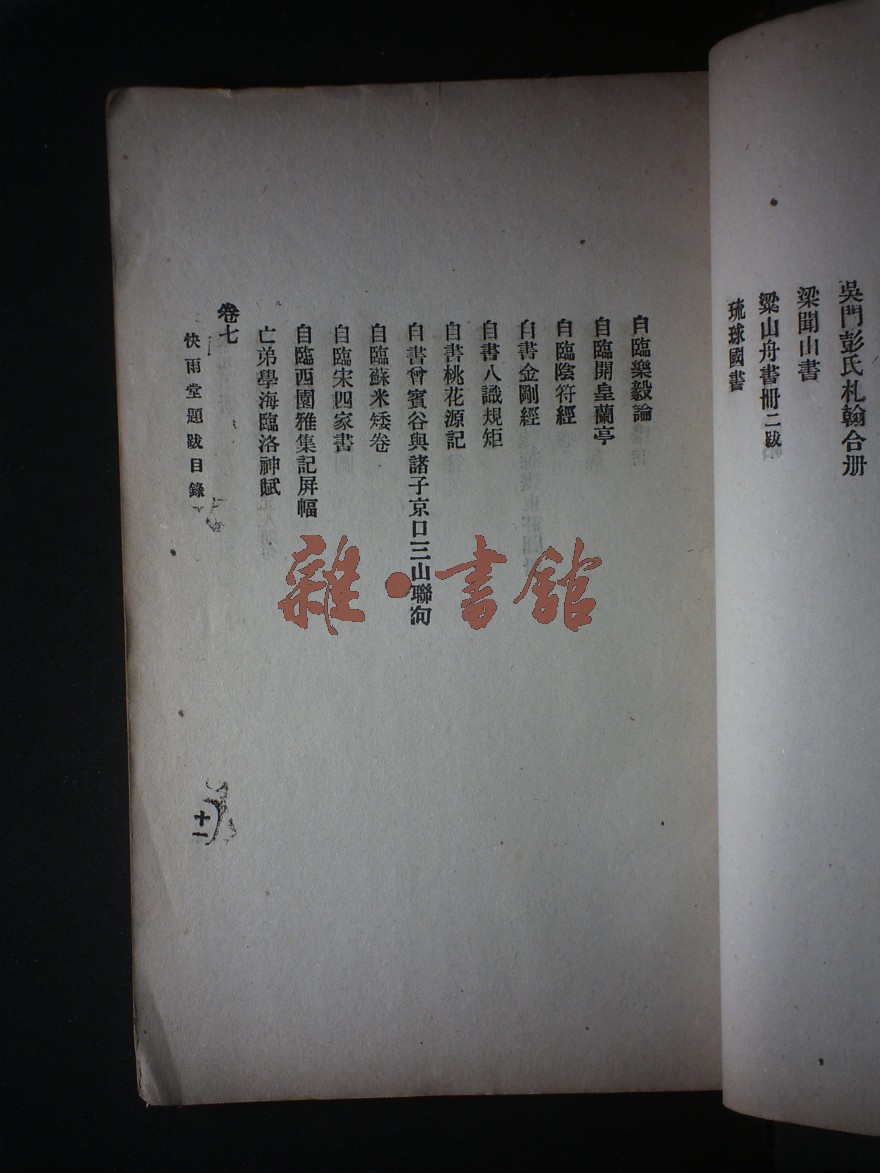 吳門彭氏札翰合册
梁聞山書
梁山舟書冊二跋
琉球國書
自臨樂毅論
自臨開皇蘭亭
自臨陰符經
自書金剛經
自書八識規矩
自書桃花源記
自書曾賓谷與諸子京口三山聯句
自臨蘇米矮卷
自臨宋四家書
自臨西園雅集記屏幅
亡弟學海臨洛神賦
卷七
快雨堂題跋目錄
十一
雜·書館